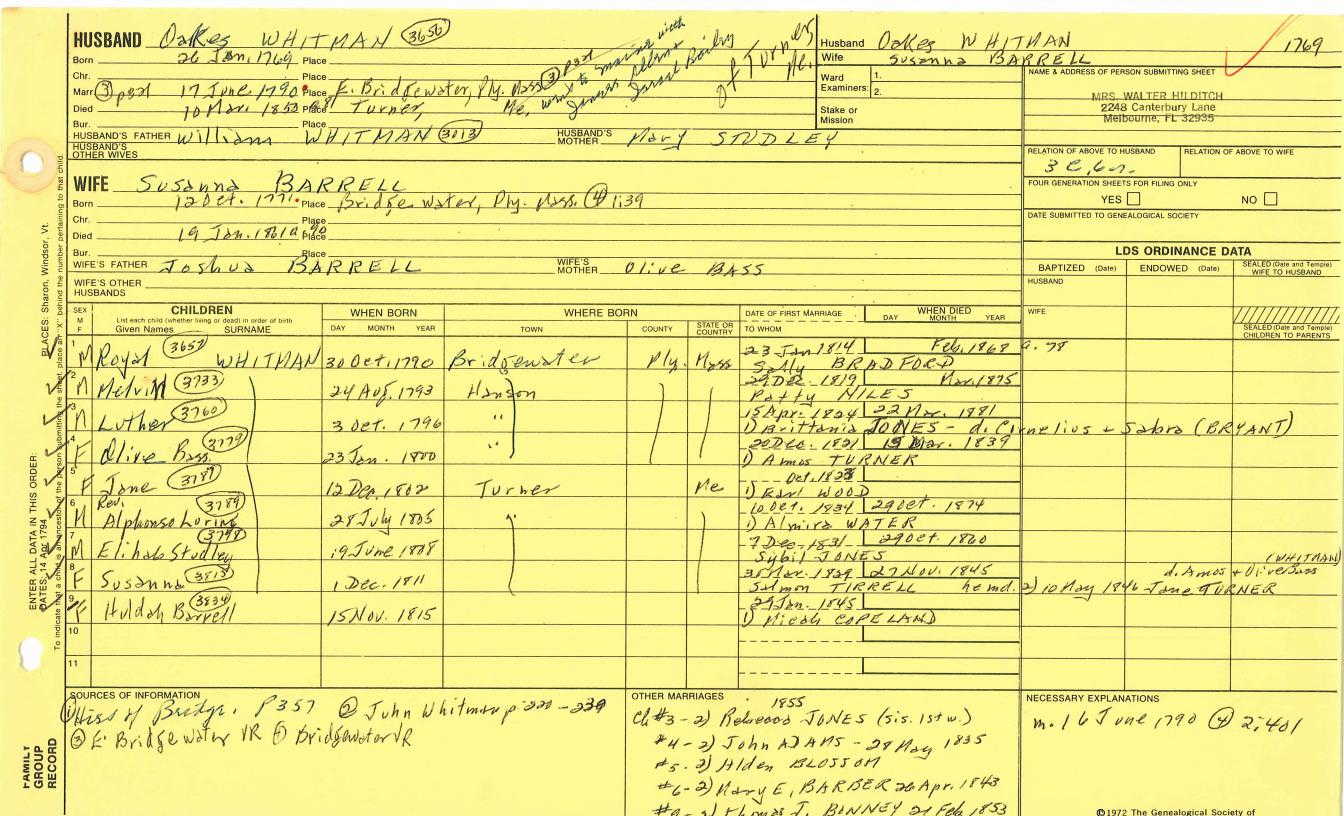 HUSBAND Oakes WHITMAN 3656
Born 26 Jan. 1769 Place
Chr. Place
Marr. ③ p391 17 June 1790 Place E. Bridgewater, Ply. Mass ③ p391
Died 10 Mar. 1853 Place Turner, Me,
Bur. Place
went to Maine with
Israel Bailey
of Turner
Me.
HUSBAND'S FATHER William WHITMAN 3013 HUSBAND'S MOTHER Mary STUDLEY
HUSBAND'S OTHER WIVES
WIFE Susanna BARRELL
Born 12 Oct. 1771 Place Bridgewater, Ply. Mass. ④ 1:39
Chr. Place
Died 19 Jan. 1861 a 90 Place
Bur. Place
WIFE'S FATHER Joshua BARRELL WIFE'S MOTHER Olive BASS
WIFE'S OTHER HUSBANDS
Husband Oakes WHITMAN 1769
Wife Susanna BARRELL
Ward Examiners: 1.
2.
Stake or Mission
NAME & ADDRESS OF PERSON SUBMITTING SHEET
MRS. WALTER HILDITCH
2248 Canterbury Lane
Melbourne, FL 32935
RELATION OF ABOVE TO HUSBAND RELATION OF ABOVE TO WIFE
3 c,6r.
FOUR GENERATION SHEETS FOR FILING ONLY
YES NO
DATE SUBMITTED TO GENEALOGICAL SOCIETY
LDS ORDINANCE DATA
BAPTIZED (Date) ENDOWED (Date) SEALED (Date and Temple) WIFE TO HUSBAND
HUSBAND
WIFE
SEALED (Date and Temple) CHILDREN TO PARENTS
SEX M F CHILDREN WHEN BORN WHERE BORN DATE OF FIRST MARRIAGE WHEN DIED
List each child (whether living or dead) in order of birth
Given Names SURNAME DAY MONTH YEAR TOWN COUNTY STATE OR COUNTRY TO WHOM DAY MONTH YEAR
1 M Royal 3657 WHITMAN 30 Oct. 1790 Bridgewater Ply. Mass 23 Jan 1814 Feb. 1868 a. 78
Sally BRADFORD
2 M Melvin 3733 24 Aug. 1793 Hanson 29 Dec. 1819 Mar. 1875
Patty NILES
3 M Luther 3760 3 Oct. 1796 " 15 Apr. 1824 22 Mar. 1881
1) Brittania JONES - d. Cornelius + Sabra (BRYANT)
4 F Olive Bass 3779 23 Jan. 1800 " 20 Dec. 1821 13 Mar. 1839
1) Amos TURNER
5 F Jane 3787 12 Dec. 1802 Turner Me Oct. 1823
1) Earl WOOD
6 M Rev. Alphonso Loring 3789 28 July 1805 " 10 Oct. 1834 29 Oct. 1874
1) Almira WATER
7 M Elihab Studley 3798 19 June 1808 7 Dec. 1831 29 Oct. 1860
Sybil JONES
8 F Susanna 3813 1 Dec. 1811 Mar. 1829 27 Nov. 1845 (WHITMAN)
d. Amos + Olive Bass
Salmon TIRRELL he md. 2) 10 May 1846 Jane TURNER
9 F Huldah Barrell 3834 15 Nov. 1815 21 Jan. 1845
1) Micah COPELAND
10
11
SOURCES OF INFORMATION
① Hist of Bridge. P357 ② John Whitman p 220-239
③ E. Bridgewater VR ④ Bridgewater VR
OTHER MARRIAGES
1855
Ch #3-2) Rebecca JONES (sis. 1st w.)
#4-2) John ADAMS - 28 May 1835
#5-2) Alden BLOSSOM
#6-2) Mary E, BARBER 26 Apr. 1843
#9-2) Thomas J. BONNEY 21 Feb 1853
NECESSARY EXPLANATIONS
m. 16 June 1790 ④ 2:401
©1972 The Genealogical Society of
ENTER ALL DATA IN THIS ORDER:
DATES: 14 Apr 1794
PLACES: Sharon, Windsor, Vt.
To indicate that a child is an ancestor of the person submitting the sheet, place an "X" behind the number pertaining to that child.
FAMILY GROUP RECORD